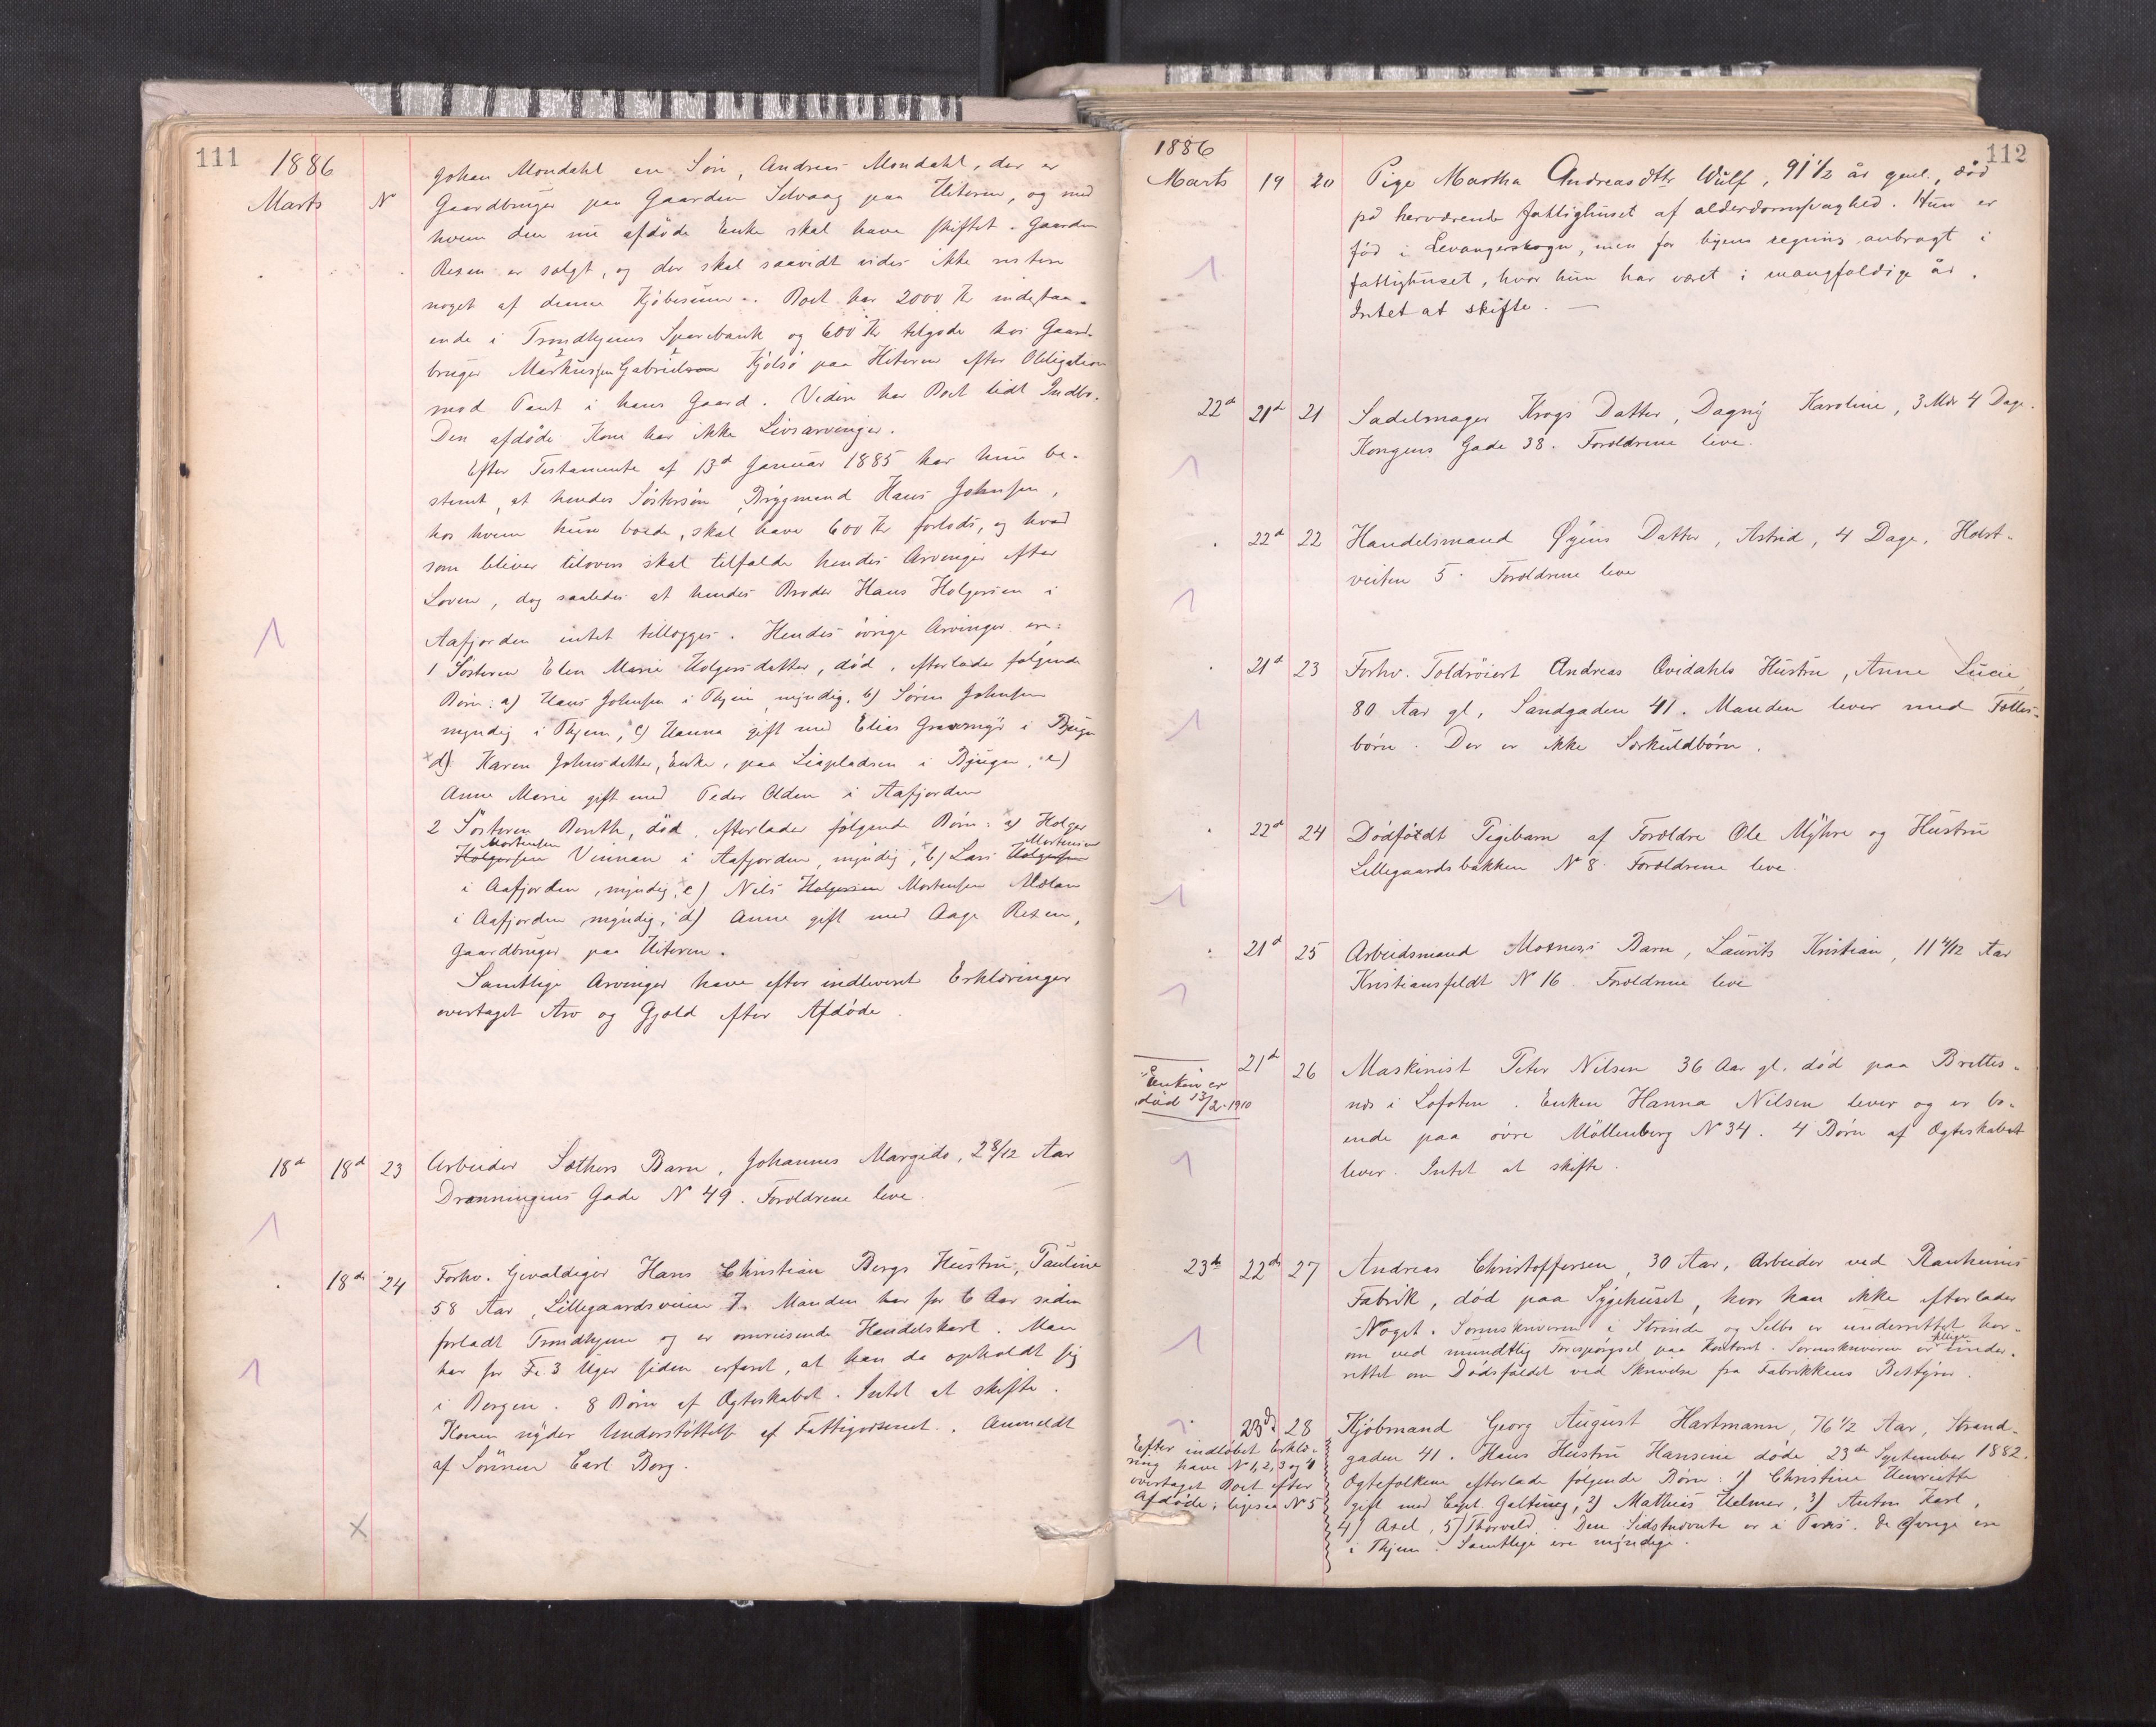 111
1886
Marts
N
Johan Mondahl en Søn, Andreas Mondahl, der er
Gaardbruger paa Gaarden Selvaag paa Hiteren, og med
hvem den nu afdøde Enke skal have skiftet. Gaarden
Resen er solgt, og der skal saavidt vides ikke restere
noget af denne Kjøbesum. Boet har 2000 Kr indestaa-
ende i Trondhjems Sparebank og 600 Kr tilgode hos Gaard-
bruger Markussen Gabrielsen Kjölsö paa Hiteren efter Obligation
mod Pant i hans Gaard. Videre har Boet lidt Indbo.
Den afdøde Kone har ikke Livsarvinger.
Efter Testamente af 13d Januar 1885 har hun be-
stemt, at hendes Søstersøn, Brygmand Hans Johnsen,
hos hvem hun boede, skal have 600 Kr forlods, og hvad
som bliver tilovers skal tilfalde hendes Arvinger efter
Loven, dog saaledes at hendes Broder Hans Holgersen i
Aafjorden intet tillægges. Hendes øvrige Arvinger ere:
1 Søsteren Elen Marie Holgersdatter, død, efterlader følgende
Børn: a) Hans Johnsen i Thjem, myndig, b) Søren Johnsen
myndig i Thjem, c) Hanna gift med Elias Gravmyr i Bjugn
d) Karen Johnsdatter, Enke, paa Liapladsen i Bjugn, e)
Anne Marie gift med Peder Olden i Aafjorden
2 Søsteren Benth, død, efterlader følgende Børn: a) Holger
Mortensen Mortensen
Holgersen Vinnan i Aafjorden, myndig, b) Lars Holgersen
i Aafjorden, myndig, c) Nils Holgersen Mortensen Mælan
i Aafjorden myndig, d) Anne gift med Aage Resen,
Gaardbruger paa Hiteren.
Samtlige Arvinger have efter indleveret Erklæringer
overtaget Arv og Gjæld efter Afdøde.
18d 18d 23 Arbeider Sæthers Barn, Johannes Margido, 2 8/12 Aar
Dronningens Gade N 49. Forældrene leve.
18de 24 Forhv. Gevaldiger Hans Christian Bergs Hustru, Pauline
58 Aar, Lillegaardsveien 7. Manden har for 6 Aar siden
forladt Trondhjem og er omreisende Handelskarl. Man
har for 3 Uger siden erfaret, at han da opholdt sig
i Bergen. 8 Børn af Ægteskabet. Intet at skifte.
Konen nyder Understøttelse af Fattigvæsenet. Anmeldt
af Sønnen Carl Berg.
112
1886
Marts 19 20 Pige Martha Andreasdttr Wulf, 91 1/2 år gml., død
på herværende fattighuset af alderdomssvaghed. Hun er
fød i Levangerskogn, men for byens regning anbragt i
fattighuset, hvor hun har været i mangfoldige år.
Intet at skifte.
22d 21d 21 Sadelmager Krogs Datter, Dagny Karoline, 3 Mdr 4 Dage.
Kongens Gade 38. Forældrene leve.
22d 22 Handelsmand Øyens Datter, Astrid, 4 Dage, Holst-
veiten 5. Forældrene leve
21d 23 Forhv. Toldrorert Andreas Qvidahls Hustru, Anne Lucie,
80 Aar gl, Sandgaden 41. Manden lever med Fælles-
børn. Der er ikke Særkuldbørn.
22d 24 Dødfødt Pigebarn af Forældre Ole Myhre og Hustru
Lillegaardsbakken N 8. Forældrene leve.
21d 25 Arbeidsmand Moxness Barn, Laurits Kristian, 11 4/12 Aar
Kristiansfeldt N 16. Forældrene leve
21d 26 Maskinist Peter Nilsen 36 Aar gl. død paa Brettes-
næs i Lofoten. Enken Hanna Nilsen lever og er bo-
ende paa øvre Möllenberg N 34. 4 Børn af Ægteskabet
lever. Intet at skifte.
Enken er
död 13/2-1910
23de 22de 27 Andreas Christoffersen, 30 Aar, Arbeider ved Ranheims
Fabrik, død paa Sygehuset, hvor han ikke efterlader
Noget. Sorenskriveren i Strinde og Selbo er underrettet her-
om ved mundtlig Forespørgsel paa Kontoret. Sorenskriveren er tillige under-
rettet om Dødsfaldet ved Skrivelse fra Fabrikkens Bestyrer.
23d 28 Kjøbmand Georg August Hartmann, 76 1/2 Aar, Strand-
gaden 41. Hans Hustru Hansine døde 23de September 1882.
Ægtefolkene efterlade følgende Børn: 1) Christine Henriette
gift med Capt. Galtung, 2) Mathias Helmer, 3) Anton Karl,
4) Axel, 5) Thorvald. Den Sidstnævnte er i Paris. De øvrige ere
i Thjem. Samtlige ere myndige.
Efter indløbet Erklæ-
ring have N 1, 2, 3 og 4
overtaget Boet efter
Afdøde; ligesaa N 5